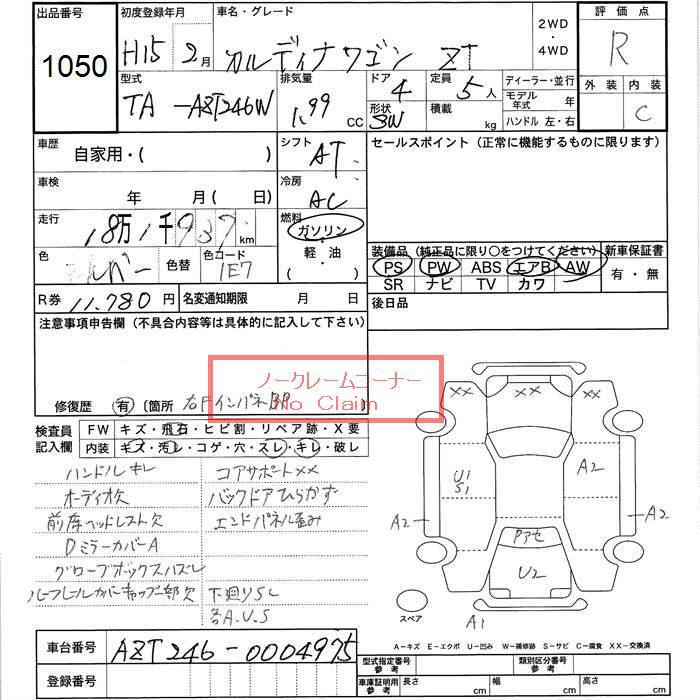 出品番号 初度登録年月 車名・グレード 2WD・4WD 評価点
1050 H15 2月 カルディナワゴン ZT R
型式 排気量 ドア 定員 ディーラー・並行 外装 内装
TA-AZT246W 1.99 CC 4 5人 モデル年式 年 C
形状 積載 ハンドル 左・右
SW kg
車歴 自家用・( ) シフト AT セールスポイント (正常に機能するものに限ります)
車検 年 月( 日) 冷房 AC
走行 18万1千937km 燃料 ガソリン・軽・油・( )
色 シルバー 色替 色コード 1E7
装備品 (純正品に限り○をつけてください) 新車保証書
PS PW ABS エアB AW 有・無
SR ナビ TV カワ
R券 11.780円 名変通知期限 月 日 後日品
注意事項申告欄 (不具合内容等は具体的に記入して下さい)
ノークレームコーナー
No Claim
修復歴 有 〔箇所 右Fインパネ
検査員記入欄 FW キズ・飛石・ヒビ割・リペア跡・X要
内装 キズ・汚レ・コゲ・穴・スレ・キレ・破レ
ハンドルキレ コアサポートXX
オーディオ欠 バックドアひらかず
前席ヘッドレスト欠 エンドパネル歪み
DミラーカバーA
グローブボックスハズレ
ルーフレールカバーキャップ一部欠 下廻りSし
各A.U.S
XX XX XX
U1 S1 A2
A2 A2
Pアセ
U2
スペア A1
A−キズ E−エクボ U−凹み W−補修跡 S−サビ C−腐食 XX−交換済
車台番号 AZT246-0004975
登録番号
型式指定番号 参考 類別区分番号 参考
車庫証明用 参考 長さ cm 幅 cm 高さ cm